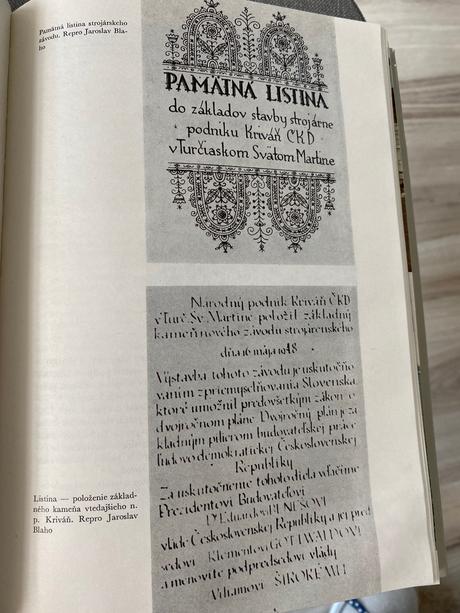 Pamätná listina strojárskeho
závodu. Repro Jaroslav Bla-
ho
PAMÄTNÁ LISTINA
do základov stavby strojárne
podniku Kriváň ČKD
v Turčiaskom Svätom Martine
Národný podnik Kriváň ČKD
v Turč. Sv. Martine položil základný
kameň nového závodu strojárenského
dňa 16 mája 1948
Výstavba tohoto závodu je uskutočňo
vaním zpriemyselňovania Slovenska
ktoré umožnil predovšetkým zákon o
dvojročnom pláne Dvojročný plán je zá
kladným pilierom budovateľskej práce
ľudovodemokratickej Československej
Republiky
Za uskutočnenie tohoto diela vďačíme
Prezidentovi Budovateľovi
Dr Eduardovi BENEŠOVI
vláde Československej Republiky a jej pred
sedovi Klementovi GOTTWALDOVI
a menovite podpredsedovi vlády
Viliamovi ŠIROKÉMU
Listina — položenie základ-
ného kameňa vtedajšieho n.
p. Kriváň. Repro Jaroslav
Blaho